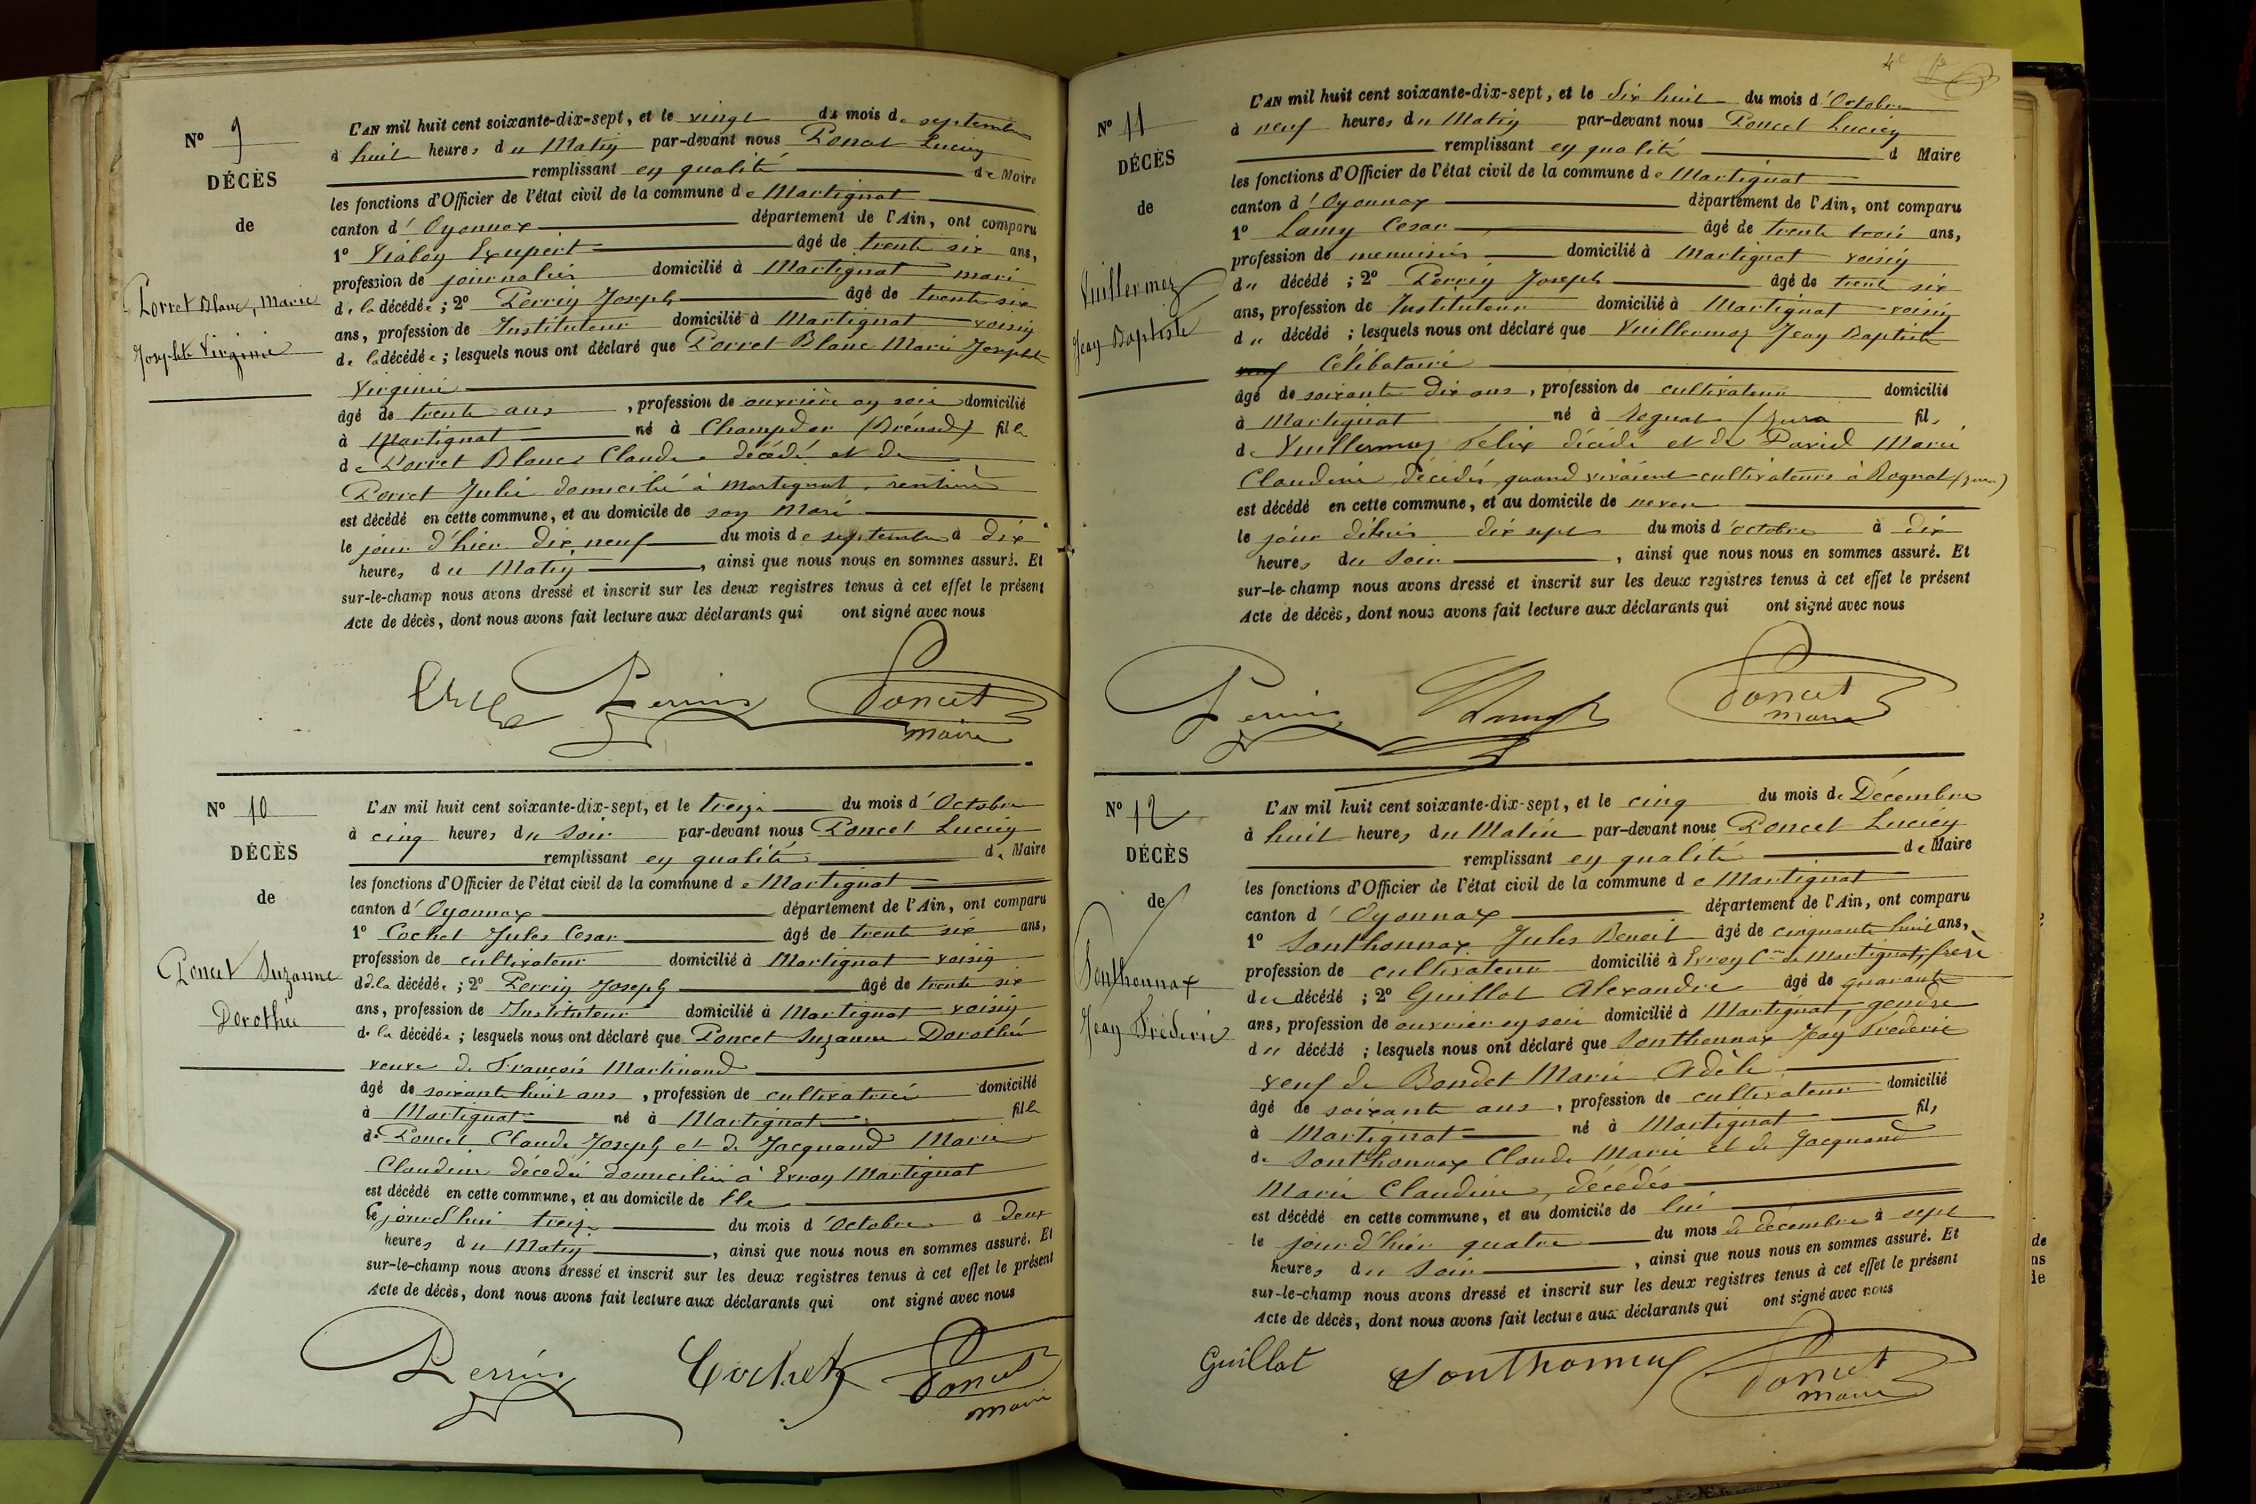 N° 9
DÉCÈS
de
Porret Blanc, Marie
Josephte Virginie
L'AN mil huit cent soixante-dix-sept, et le vingt du mois de septembre
à huit heures du Matin par-devant nous Poncet Lucien
remplissant en qualité de Maire
les fonctions d'Officier de l'état civil de la commune de Martignat
canton d'Oyonnax département de l'Ain, ont comparu
1° Viaboy Exupert âgé de trente six ans,
profession de journalier domicilié à Martignat mari
de la décédée ; 2° Perrin Joseph âgé de trente six
ans, profession de Instituteur domicilié à Martignat voisin
de la décédée ; lesquels nous ont déclaré que Porret Blanc Marie Josephte
Virginie
âgé de trente ans, profession de ouvrière en soie domicilié
à Martignat né à Champdor (Brénod) fille
de Porret Blanc Claude décédé et de
Perret Julie domicilié à Martignat, rentière
est décédé en cette commune, et au domicile de son Mari
le jour d'hier dix neuf du mois de septembre à dix
heures du Matin, ainsi que nous nous en sommes assuré. Et
sur-le-champ nous avons dressé et inscrit sur les deux registres tenus à cet effet le présent
Acte de décès, dont nous avons fait lecture aux déclarants qui ont signé avec nous
Perrin Poncet
maire
N° 10
DÉCÈS
de
Poncet Suzanne
Dorothée
L'AN mil huit cent soixante-dix-sept, et le treize du mois d'Octobre
à cinq heures du Soir par-devant nous Poncet Lucien
remplissant en qualité de Maire
les fonctions d'Officier de l'état civil de la commune de Martignat
canton d'Oyonnax département de l'Ain, ont comparu
1° Cochet Jules Cesar âgé de trente six ans,
profession de cultivateur domicilié à Martignat voisin
de la décédée ; 2° Perrin Joseph âgé de trente six
ans, profession de Instituteur domicilié à Martignat voisin
de la décédée ; lesquels nous ont déclaré que Poncet Suzanne Dorothée
veuve de François Martinand
âgé de soixante huit ans, profession de cultivatrice domicilié
à Martignat né à Martignat fille
de Poncet Claude Joseph et de Jacquand Marie
Claudine décédés domiciliés à Evron Martignat
est décédé en cette commune, et au domicile de Elle
le jourd'hui treize du mois d'Octobre à deux
heures du Matin, ainsi que nous nous en sommes assuré. Et
sur-le-champ nous avons dressé et inscrit sur les deux registres tenus à cet effet le présent
Acte de décès, dont nous avons fait lecture aux déclarants qui ont signé avec nous
Perrin Cochet Poncet
maire
4e
N° 11
DÉCÈS
de
Vuillermoz
Jean Baptiste
L'AN mil huit cent soixante-dix-sept, et le dix huit du mois d'Octobre
à neuf heures du Matin par-devant nous Poncet Lucien
remplissant en qualité d Maire
les fonctions d'Officier de l'état civil de la commune de Martignat
canton d'Oyonnax département de l'Ain, ont comparu
1° Lamy Cesar âgé de trente trois ans,
profession de menuisier domicilié à Martignat voisin
du décédé ; 2° Perrin Joseph âgé de trente six
ans, profession de Instituteur domicilié à Martignat voisin
du décédé ; lesquels nous ont déclaré que Vuillermoz Jean Baptiste
Célibataire
âgé de soixante dix ans, profession de cultivateur domicilié
à Martignat né à Rognat (Jura fils
de Vuillermoz Félix décédé et de David Marie
Claudine décédés, quand vivaient cultivateurs à Rognat (Jura)
est décédé en cette commune, et au domicile de neveu
le jour d'hier dix sept du mois d'octobre à dix
heures du Soir, ainsi que nous nous en sommes assuré. Et
sur-le-champ nous avons dressé et inscrit sur les deux registres tenus à cet effet le présent
Acte de décès, dont nous avons fait lecture aux déclarants qui ont signé avec nous
Perrin Lamy Poncet
maire
N° 12
DÉCÈS
de
Sonthonnax
Jean Fréderic
L'AN mil huit cent soixante-dix-sept, et le cinq du mois de Décembre
à huit heures du Matin par-devant nous Poncet Lucien
remplissant en qualité de Maire
les fonctions d'Officier de l'état civil de la commune de Martignat
canton d'Oyonnax département de l'Ain, ont comparu
1° Sonthonnax Jules Benoit âgé de cinquante huit ans,
profession de cultivateur domicilié à Evron Cne de Martignat, frère
du décédé ; 2° Guillot Alexandre âgé de quarante
ans, profession de ouvrier en soie domicilié à Martignat, gendre
du décédé ; lesquels nous ont déclaré que Sonthonnax Jean Fréderic
veuf de Bondet Marie Adèle
âgé de soixante ans, profession de cultivateur domicilié
à Martignat né à Martignat fils
de Sonthonnax Claude Marie et de Jacquand
Marie Claudine, décédés
est décédé en cette commune, et au domicile de lui
le jour d'hier quatre du mois de décembre à sept
heures du Soir, ainsi que nous nous en sommes assuré. Et
sur-le-champ nous avons dressé et inscrit sur les deux registres tenus à cet effet le présent
Acte de décès, dont nous avons fait lecture aux déclarants qui ont signé avec nous
Guillot Sonthonnax Poncet
maire